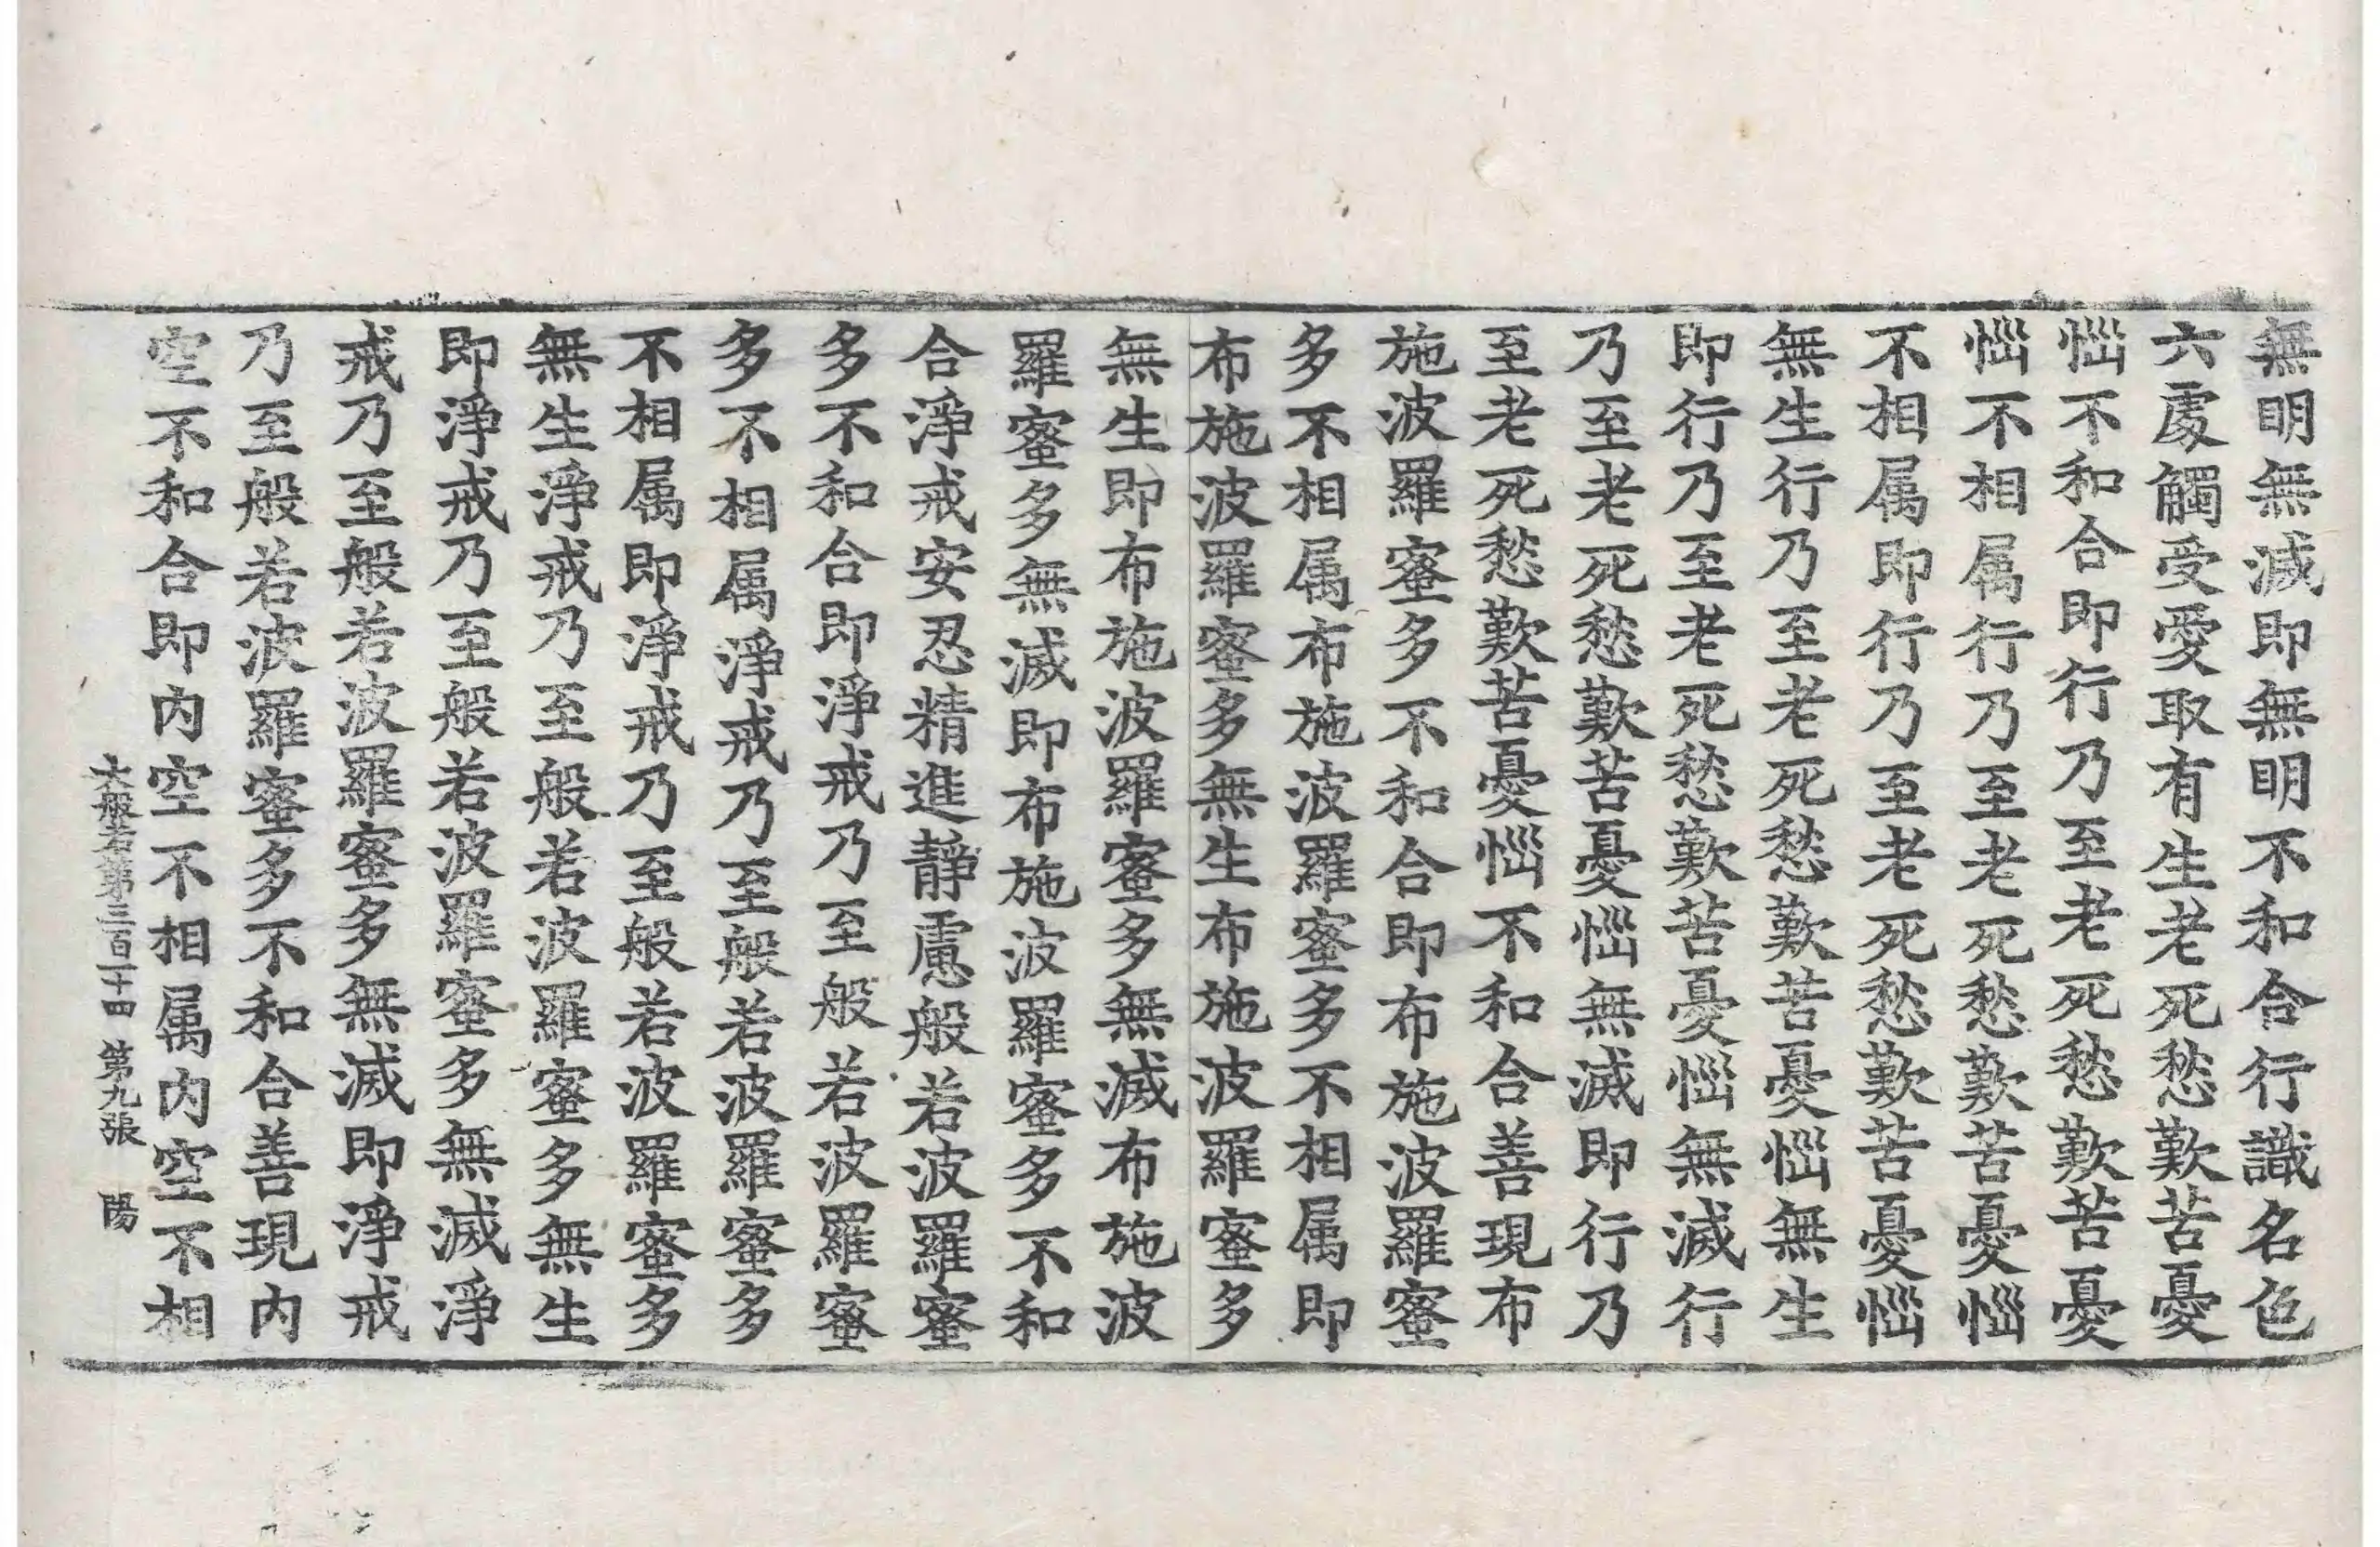 無明無滅即無明不和合行識名色
六處觸受愛取有生老死愁歎苦憂
惱不和合即行乃至老死愁歎苦憂
惱不相属行乃至老死愁歎苦憂惱
不相属即行乃至老死愁歎苦憂惱
無生行乃至老死愁歎苦憂惱無生
即行乃至老死愁歎苦憂惱無滅行
乃至老死愁歎苦憂惱無滅即行乃
至老死愁歎苦憂惱不和合善現布
施波羅蜜多不和合即布施波羅蜜
多不相属布施波羅蜜多不相属即
布施波羅蜜多無生布施波羅蜜多
無生即布施波羅蜜多無滅布施波
羅蜜多無滅即布施波羅蜜多不和
合淨戒安忍精進靜慮般若波羅蜜
多不和合即淨戒乃至般若波羅蜜
多不相属淨戒乃至般若波羅蜜多
不相属即淨戒乃至般若波羅蜜多
無生淨戒乃至般若波羅蜜多無生
即淨戒乃至般若波羅蜜多無滅淨
戒乃至般若波羅蜜多無滅即淨戒
乃至般若波羅蜜多不和合善現内
空不和合即内空不相属内空不相
大般若第三百二十四 第九張 陽